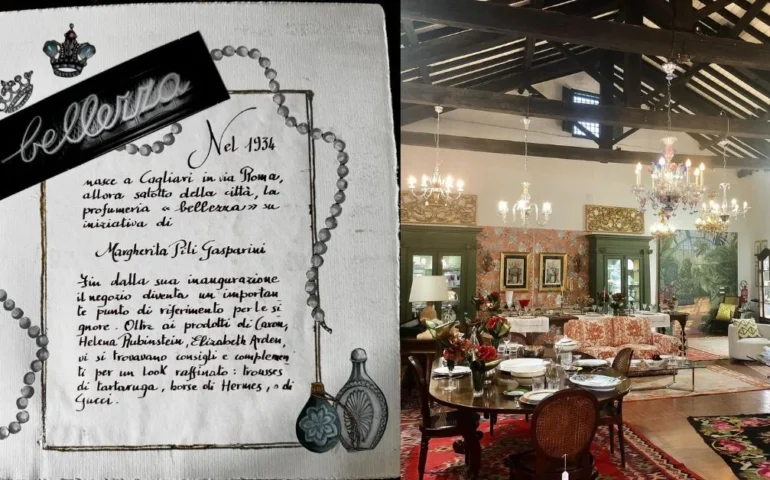 bellezza
Nel 1934
nasce a Cagliari in via Roma,
allora salotto della città, la
profumeria « bellezza» su
iniziativa di
Margherita Pili Gasparini
Fin dalla sua inaugurazione
il negozio diventa un importan
te punto di riferimento per le si
gnore. Oltre ai prodotti di Caron,
Helena Rubinstein, Elizabeth Arden,
vi si trovavano consigli e complemen
ti per un look raffinato: trousses
di tartaruga, borse di Hermes, o di
Gucci.